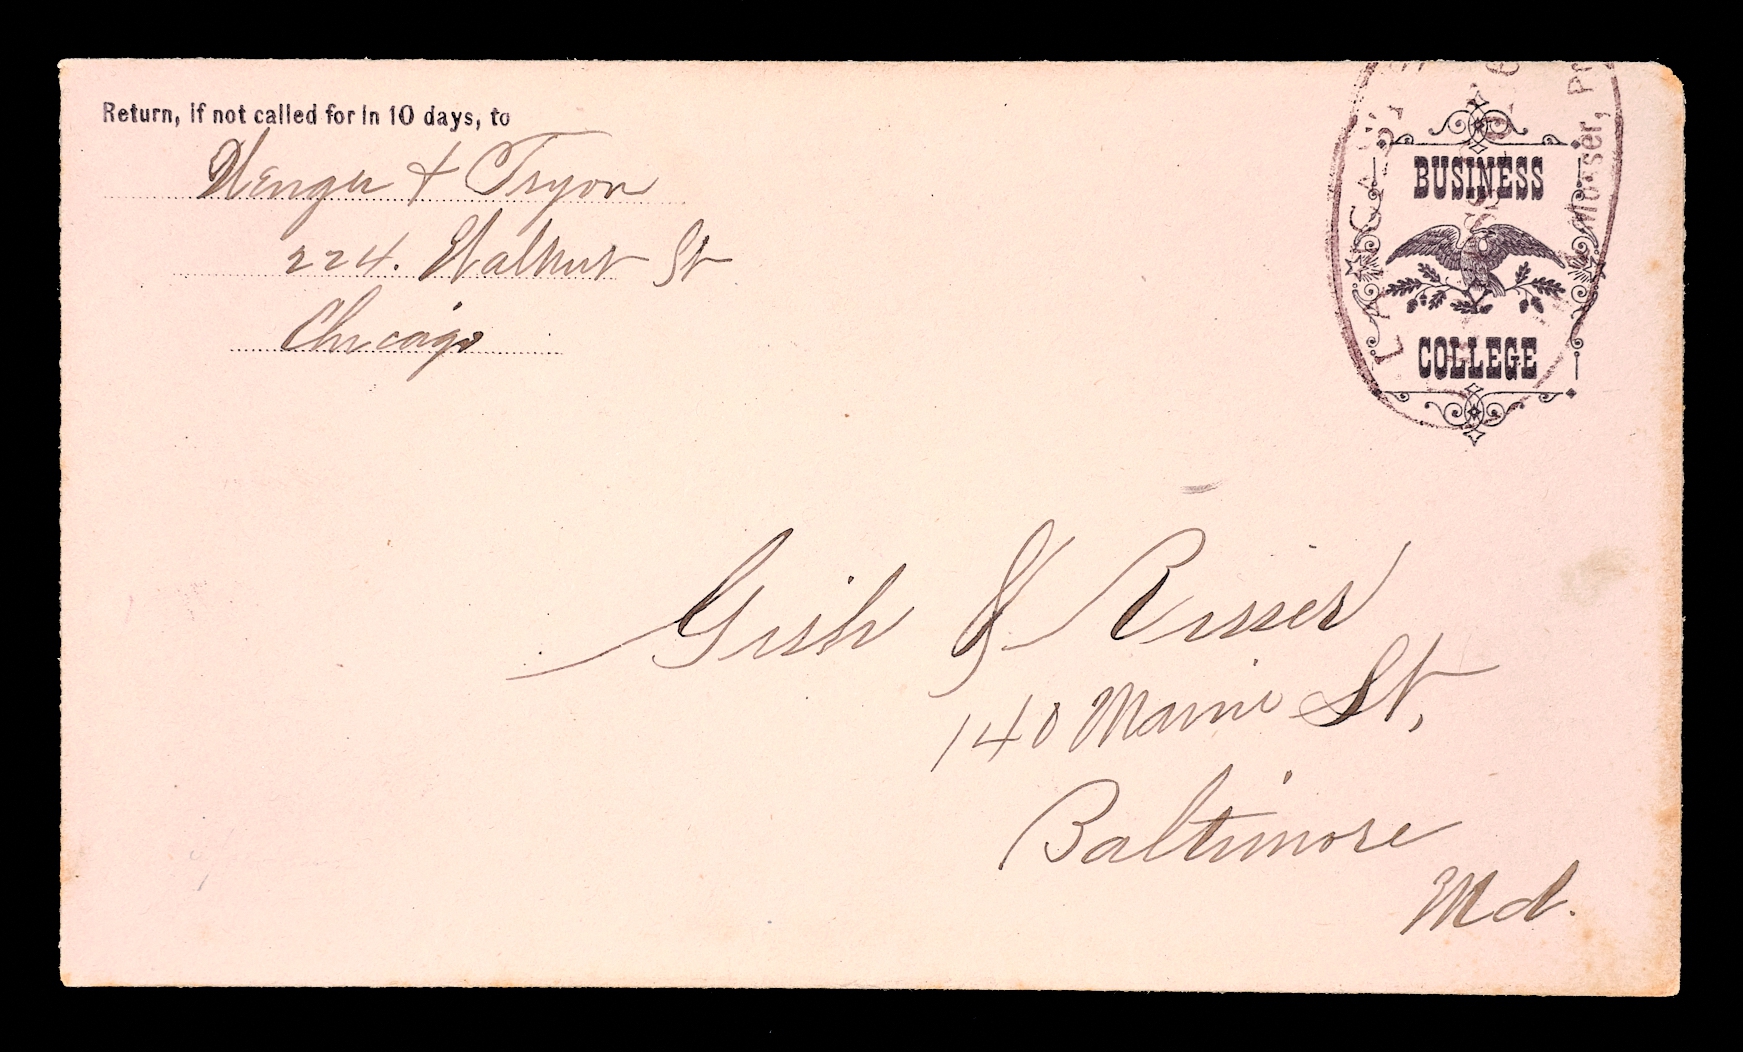 Return, if not called for in 10 days, to
Wenger & Tryon
224. Walnut St
Chicago
BUSINESS
COLLEGE
LANCAST
Mosser, Pr
Gish & Risser
140 Maine St,
Baltimore
Md.